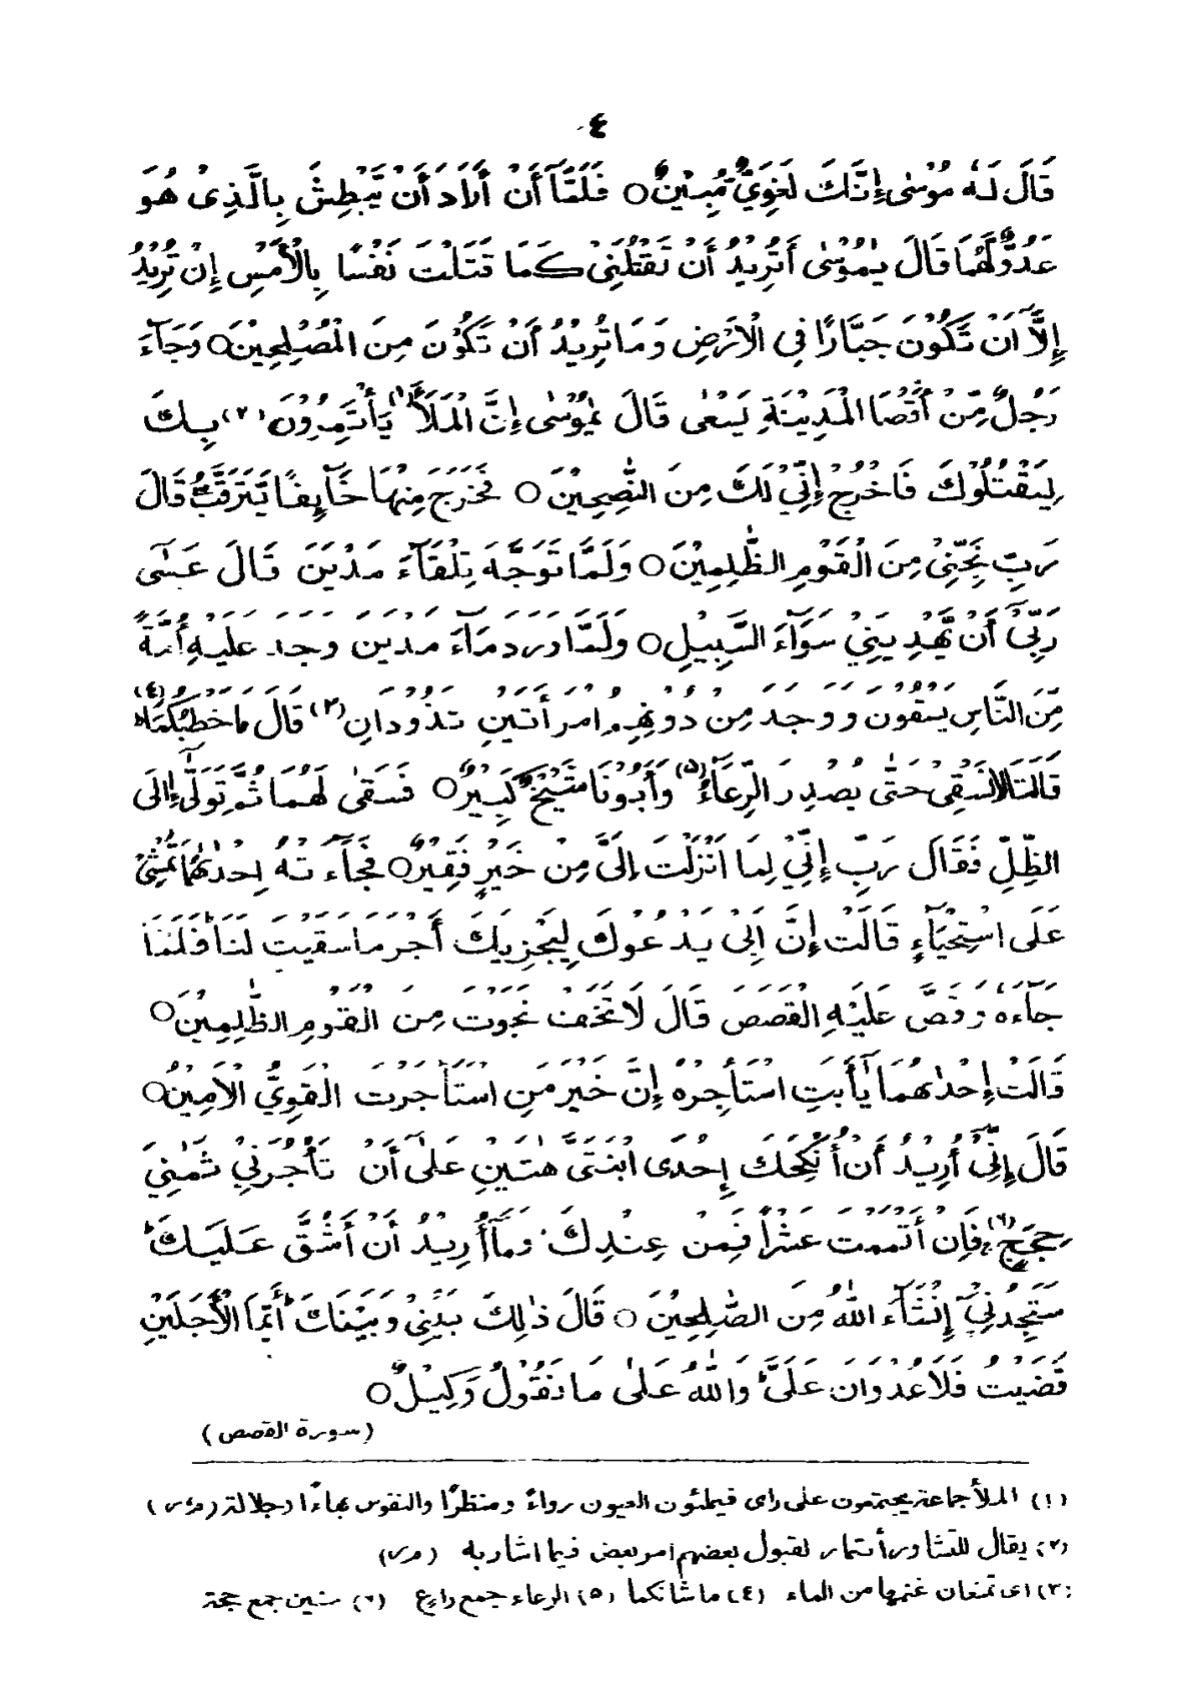 ٤
قَالَ لَهٗ مُوْسٰى إِنَّكَ لَغَوِيٌّ مُّبِيْنٌ○ فَلَمَّآ أَنْ أَرَادَ أَنْ يَّبْطِشَ بِالَّذِىْ هُوَ
عَدُوٌّ لَّهُمَا قَالَ يٰمُوْسٰى أَتُرِيْدُ أَنْ تَقْتُلَنِىْ كَمَا قَتَلْتَ نَفْسًا بِالْأَمْسِ إِنْ تُرِيْدُ
إِلَّا أَنْ تَكُوْنَ جَبَّارًا فِى الْأَرْضِ وَمَا تُرِيْدُ أَنْ تَكُوْنَ مِنَ الْمُصْلِحِيْنَ○ وَجَآءَ
رَجُلٌ مِّنْ أَقْصَا الْمَدِيْنَةِ يَسْعٰى قَالَ يٰمُوْسٰى إِنَّ الْمَلَأَ (١) يَأْتَمِرُوْنَ (٢) بِكَ
لِيَقْتُلُوْكَ فَاخْرُجْ إِنِّىْ لَكَ مِنَ النّٰصِحِيْنَ ○ فَخَرَجَ مِنْهَا خَآئِفًا يَّتَرَقَّبُ قَالَ
رَبِّ نَجِّنِىْ مِنَ الْقَوْمِ الظّٰلِمِيْنَ○ وَلَمَّا تَوَجَّهَ تِلْقَآءَ مَدْيَنَ قَالَ عَسٰى
رَبِّىْٓ أَنْ يَّهْدِيَنِىْ سَوَآءَ السَّبِيْلِ○ وَلَمَّا وَرَدَ مَآءَ مَدْيَنَ وَجَدَ عَلَيْهِ أُمَّةً
مِّنَ النَّاسِ يَسْقُوْنَ وَوَجَدَ مِنْ دُوْنِهِمُ امْرَأَتَيْنِ تَذُوْدَانِ (٣) قَالَ مَا خَطْبُكُمَا (٤)
قَالَتَا لَا نَسْقِىْ حَتّٰى يُصْدِرَ الرِّعَآءُ (٥) وَأَبُوْنَا شَيْخٌ كَبِيْرٌ○ فَسَقٰى لَهُمَا ثُمَّ تَوَلّٰىٓ إِلَى
الظِّلِّ فَقَالَ رَبِّ إِنِّىْ لِمَا أَنْزَلْتَ إِلَىَّ مِنْ خَيْرٍ فَقِيْرٌ○ فَجَآءَتْهُ إِحْدٰىهُمَا تَمْشِىْ
عَلَى اسْتِحْيَآءٍ قَالَتْ إِنَّ أَبِىْ يَدْعُوْكَ لِيَجْزِيَكَ أَجْرَ مَا سَقَيْتَ لَنَا فَلَمَّا
جَآءَهٗ وَقَصَّ عَلَيْهِ الْقَصَصَ قَالَ لَا تَخَفْ نَجَوْتَ مِنَ الْقَوْمِ الظّٰلِمِيْنَ○
قَالَتْ إِحْدٰىهُمَا يٰٓأَبَتِ اسْتَأْجِرْهُ إِنَّ خَيْرَ مَنِ اسْتَأْجَرْتَ الْقَوِىُّ الْأَمِيْنُ○
قَالَ إِنِّىْٓ أُرِيْدُ أَنْ أُنْكِحَكَ إِحْدَى ابْنَتَىَّ هٰتَيْنِ عَلٰىٓ أَنْ تَأْجُرَنِىْ ثَمٰنِىَ
حِجَجٍ (٦) فَإِنْ أَتْمَمْتَ عَشْرًا فَمِنْ عِنْدِكَ وَمَآ أُرِيْدُ أَنْ أَشُقَّ عَلَيْكَ
سَتَجِدُنِىْٓ إِنْشَآءَ اللّٰهُ مِنَ الصّٰلِحِيْنَ ○ قَالَ ذٰلِكَ بَيْنِىْ وَبَيْنَكَ أَيَّمَا الْأَجَلَيْنِ
قَضَيْتُ فَلَا عُدْوَانَ عَلَىَّ وَاللّٰهُ عَلٰى مَا نَقُوْلُ وَكِيْلٌ○
(سورة القصص)
(١) الملأ جماعة يجتمعون على راى فيملئون العيون رواءً ومنظرًا والنفوس بهاءًا وجلالة (مرس)
(٢) يقال للتشاور أتمار لقبول بعضهم أمر بعض فيما اشار به (مرس)
(٣) اى تمنعان غنمها من الماء (٤) ما شانكما (٥) الرعاء جمع راع (٦) سنين جمع حجة